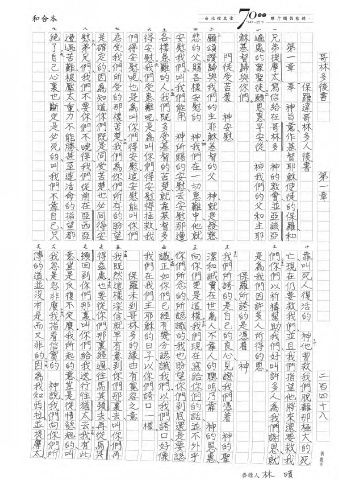 和合本
台北靈糧堂 70週年 雙子國教會禱
哥林多後書　第一章　二百四十八
保羅達哥林多人後書
第一章　奉 神旨意作基督耶穌使徒的保羅和
兄弟提摩太寫信給在哥林多 神的教會並亞該亞
遍處的眾聖徒願恩惠平安從 神我們的父和主耶
穌基督歸與你們
門徒受苦蒙 神安慰
願頌讚歸與我們的主耶穌基督的父 神就是發慈
悲的父賜各樣安慰的 神我們在一切患難中他就
安慰我們叫我們能用 神所賜的安慰去安慰那遭
各樣患難的人我們既多受基督的苦楚就靠基督多
得安慰我們受患難呢是為叫你們得安慰得拯救
我們得安慰呢也是為叫你們得安慰這安慰能叫你們
忍受我們所受的那樣苦楚我們為你們所存的盼望
是確定的因為知道你們既是同受苦楚也必同得安
慰弟兄們我們不要你們不曉得我們從前在亞西亞
遭遇苦難被壓太重力不能勝甚至連活命的指望都
絕了自己心裏也斷定是必死的叫我們不靠自己只
靠叫死人復活的 神他曾救我們脫離那極大的死
亡現在仍要救我們並且我們指望他將來還要救我
們你們以祈禱幫助我們好叫許多人為我們謝恩就
是為我們因許多人所得的恩
保羅所誇的是憑著 神
我們所誇的是自己的良心見證我們憑著 神的聖
潔和誠實在世為人不靠人的聰明乃靠 神的恩惠
向你們更是這樣我們現在寫給你們的話並不外乎
你們所念的所認識的我也盼望你們到底還是要認
識正如你們已經有幾分認識我們以我們誇口好像
我們在我們主耶穌的日子以你們誇口一樣
保羅未到哥林多的緣由有寬容之意
我既然這樣深信就早有意到你們那裏去叫你們再
得益處也要從你們那裏經過往馬其頓去再從馬其
頓回到你們那裏叫你們給我送行往猶太去我有此
意豈是反復不定麼我所起的意豈是從情慾起的叫
我忽是忽非麼我指著信實的 神說我們向你們所
傳的道並沒有是而又非的因為我和西拉並提摩太